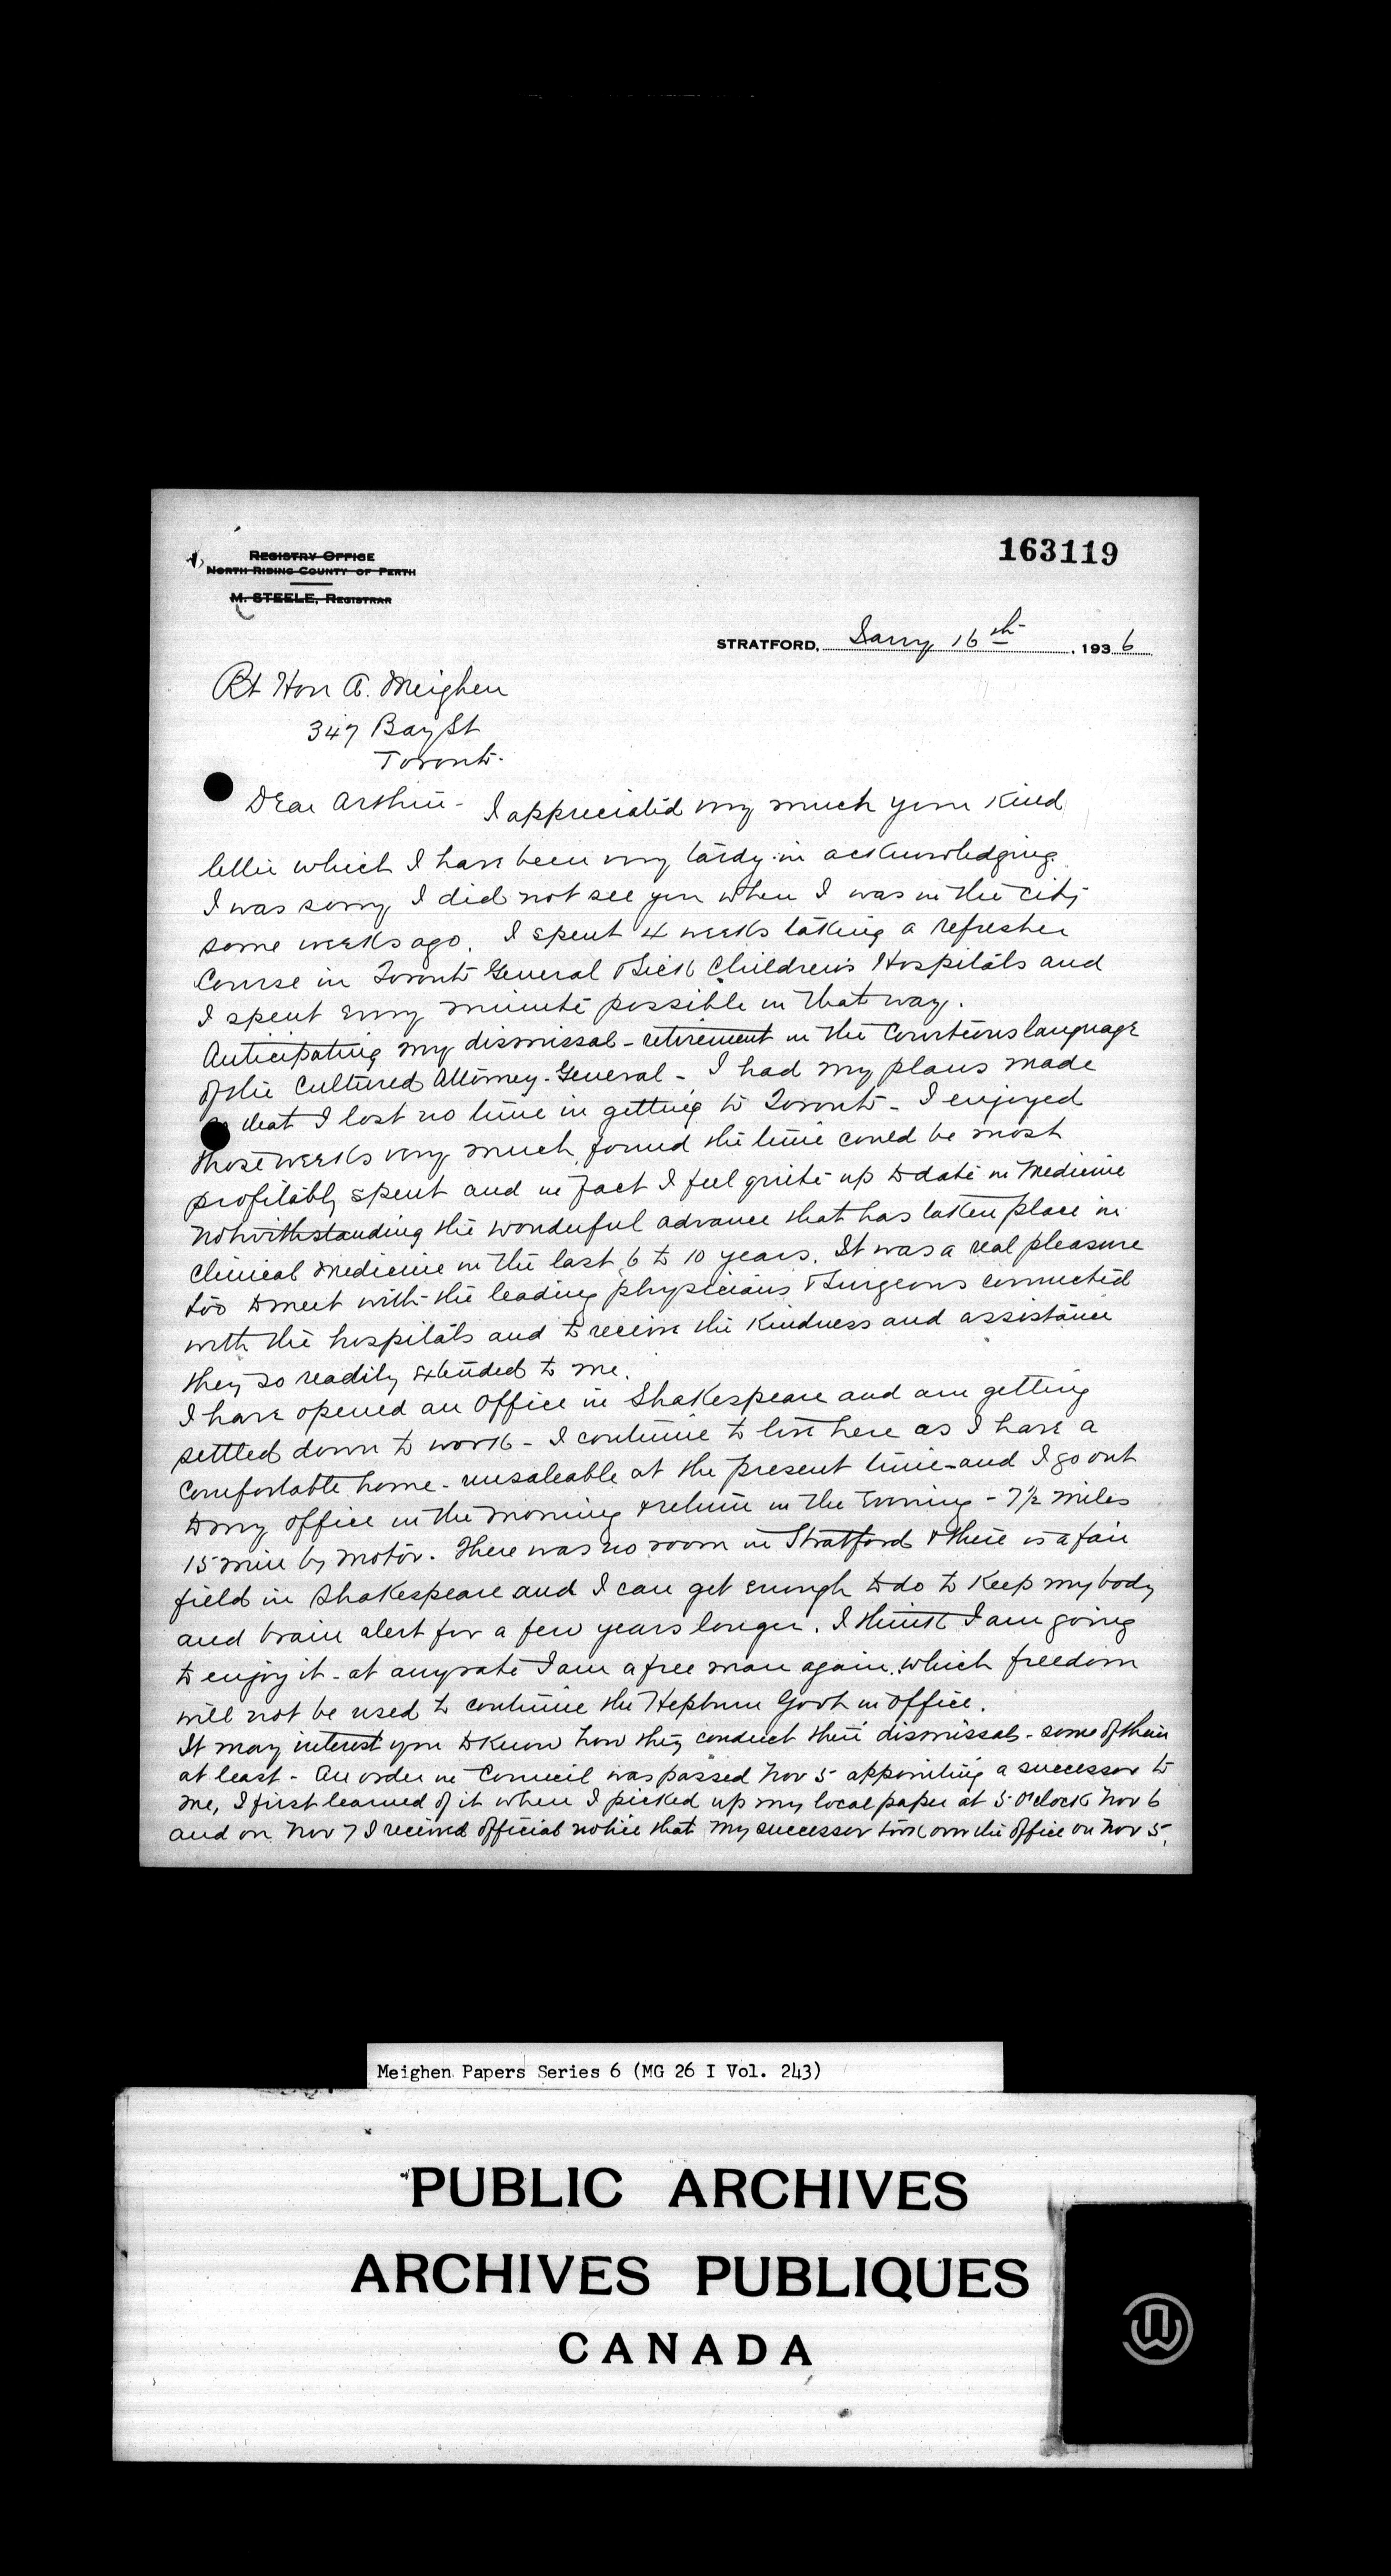 REGISTRY OFFICE
NORTH RIDING COUNTY OF PERTH
M. STEELE, REGISTRAR
163119
STRATFORD, Jany 16th, 1936
Rt Hon A. Meighen
347 Bay St
Toronto.
Dear Arthur - I appreciated very much your kind
letter which I have been very tardy in acknowledging.
I was sorry I did not see you when I was in the city
some weeks ago. I spent 4 weeks taking a refresher
Course in Toronto General & Sick Children's Hospitals and
I spent every minute possible in that way.
Anticipating my dismissal - retirement in the Courteous language
of the Cultured Attorney-General - I had my plans made
so that I lost no time in getting to Toronto - I enjoyed
those weeks very much, found the time could be most
profitably spent and in fact I feel quite up to date in Medicine
Notwithstanding the wonderful advance that has taken place in
Clinical Medicine in the last 6 to 10 years. It was a real pleasure
too to meet with the leading physicians & surgeons connected
with the hospitals and to receive the kindness and assistance
they so readily extended to me.
I have opened an Office in Shakespeare and am getting
settled down to work - I continue to live here as I have a
comfortable home - unsaleable at the present time - and I go out
to my office in the morning & return in the Evening - 7½ miles
15 min by motor. There was no room in Stratford & there is a fair
field in Shakespeare and I can get enough to do to keep my body
and brain alert for a few years longer. I think I am going
to enjoy it - at any rate I am a free man again, which freedom
will not be used to continue the Hepburn Govt in Office.
It may interest you to know how they conduct their dismissals - some of them
at least - An order in Council was passed Nov 5 appointing a successor to
me, I first learned of it when I picked up my local paper at 5 O'clock Nov 6
and on Nov 7 I received official notice that my successor took over the office on Nov 5.
Meighen Papers Series 6 (MG 26 I Vol. 243)
PUBLIC ARCHIVES
ARCHIVES PUBLIQUES
CANADA